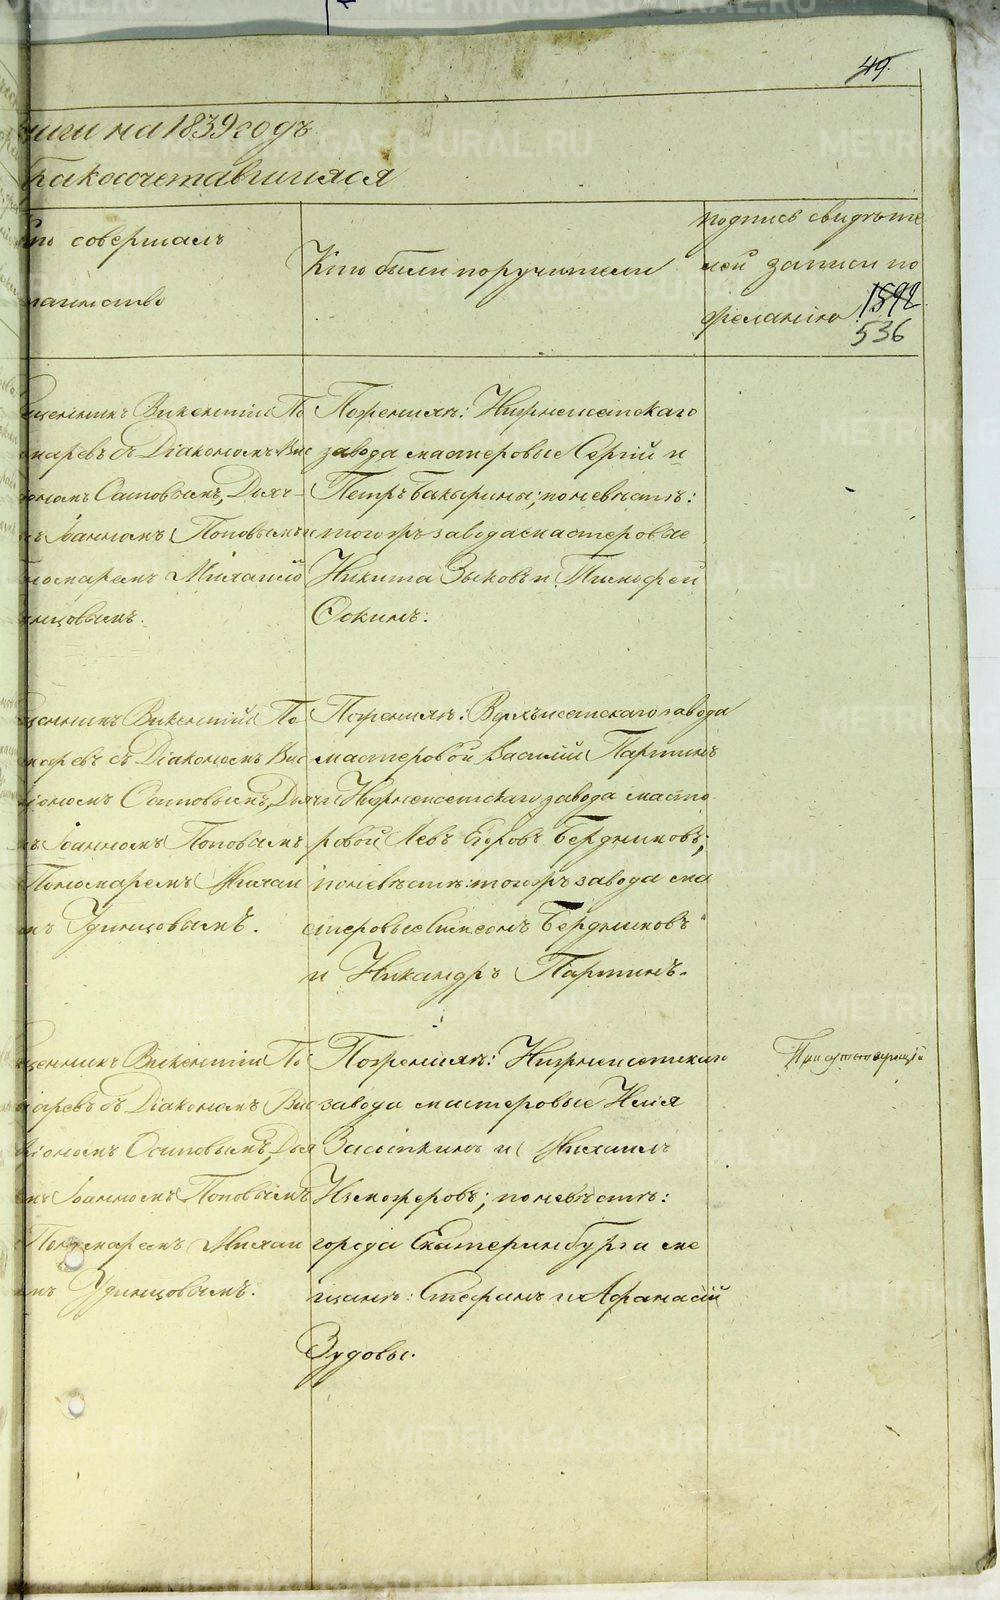 49.
ниги на 1839 годъ
бракосочетавшихся
Кто совершалъ
таинство
Кто были поручители
подпись свидѣте
лей записи по
желанію
1592
536
Священникъ Викентій По
номаревъ съ Діакономъ Вис
аріономъ Осиповымъ, Дьяч-
комъ Іоанномъ Поповымъ и
Пономаремъ Михаило
Удинцовымъ.
По женихѣ: Нижнеисетскаго
завода мастеровые Сергій и
Петръ Бакырины; по невѣстѣ:
тогожъ завода мастеровые
Никита Зыковъ и Тимофей
Оскинъ:
Священникъ Викентій По
номаревъ съ Діакономъ Вис
аріономъ Осиповымъ, Дьяч
комъ Іоанномъ Поповымъ
Пономаремъ Михаи
ломъ Удинцовымъ.
По женихѣ: Верхъисетскаго завода
мастеровой Василій Партинъ
и Нижнеисетскаго завода масте
ровой Левъ Егоровъ Бердниковъ;
по невѣстѣ: тогожъ завода ма
стеровые Симеонъ Бердниковъ
и Никандръ Партинъ.
Священникъ Викентій По
номаревъ съ Діакономъ Вис
аріономъ Осиповымъ, Дья
комъ Іоанномъ Поповымъ
Пономаремъ Михаи
ломъ Удинцовымъ.
По женихѣ: Нижнеисетскаго
завода мастеровые Илія
и Михаилъ
Изможеровъ; по невѣстѣ:
города Екатеринбурга ме
щане: Стефанъ и Афанасій
Зудовы.
METRIKI.GASO-URAL.RU